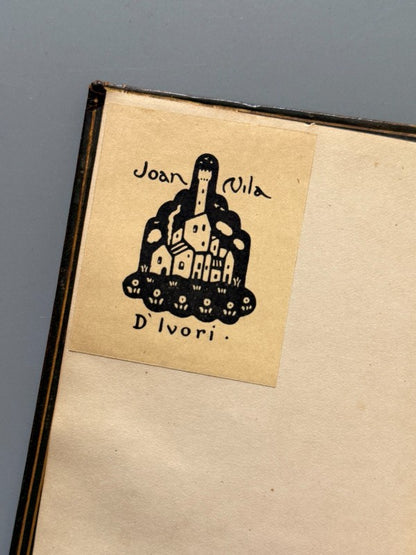 Joan Vila
D'Ivori.